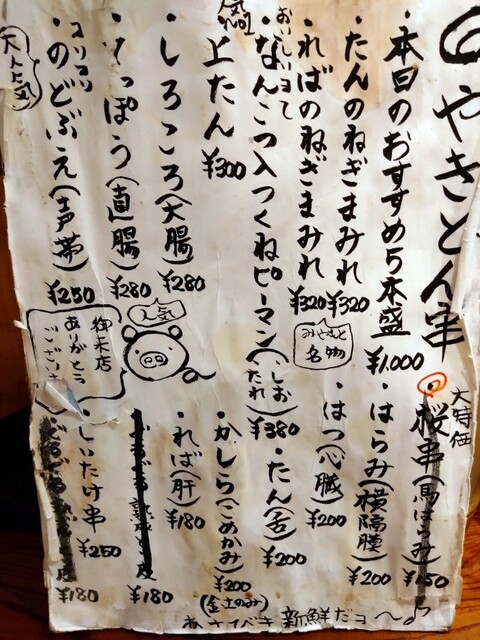 やきとん串
・本日のおすすめ5本盛 ¥1.000
・たんのねぎまみれ ¥320
・ればのねぎまみれ ¥320
みやもと名物
おいしいヨて
・なんこつ入つくねピーマン(しお たれ) ¥380
人気No1
・上たん ¥300
・しろころ(大腸) ¥280
・てっぽう(直腸) ¥280
大人気
コリコリ
・のどぶえ(声帯) ¥250
人気
御来店
ありがとう
ござい
大特価
・桜串(馬はらみ) ¥150
・はらみ(横隔膜) ¥200
・はつ(心臓) ¥200
・たん(舌) ¥200
・かしら(こめかみ) ¥200
(金土のみ)
・れば(肝) ¥180
¥180
・しいたけ串 ¥250
¥180
あさびき新鮮だヨ〜♪